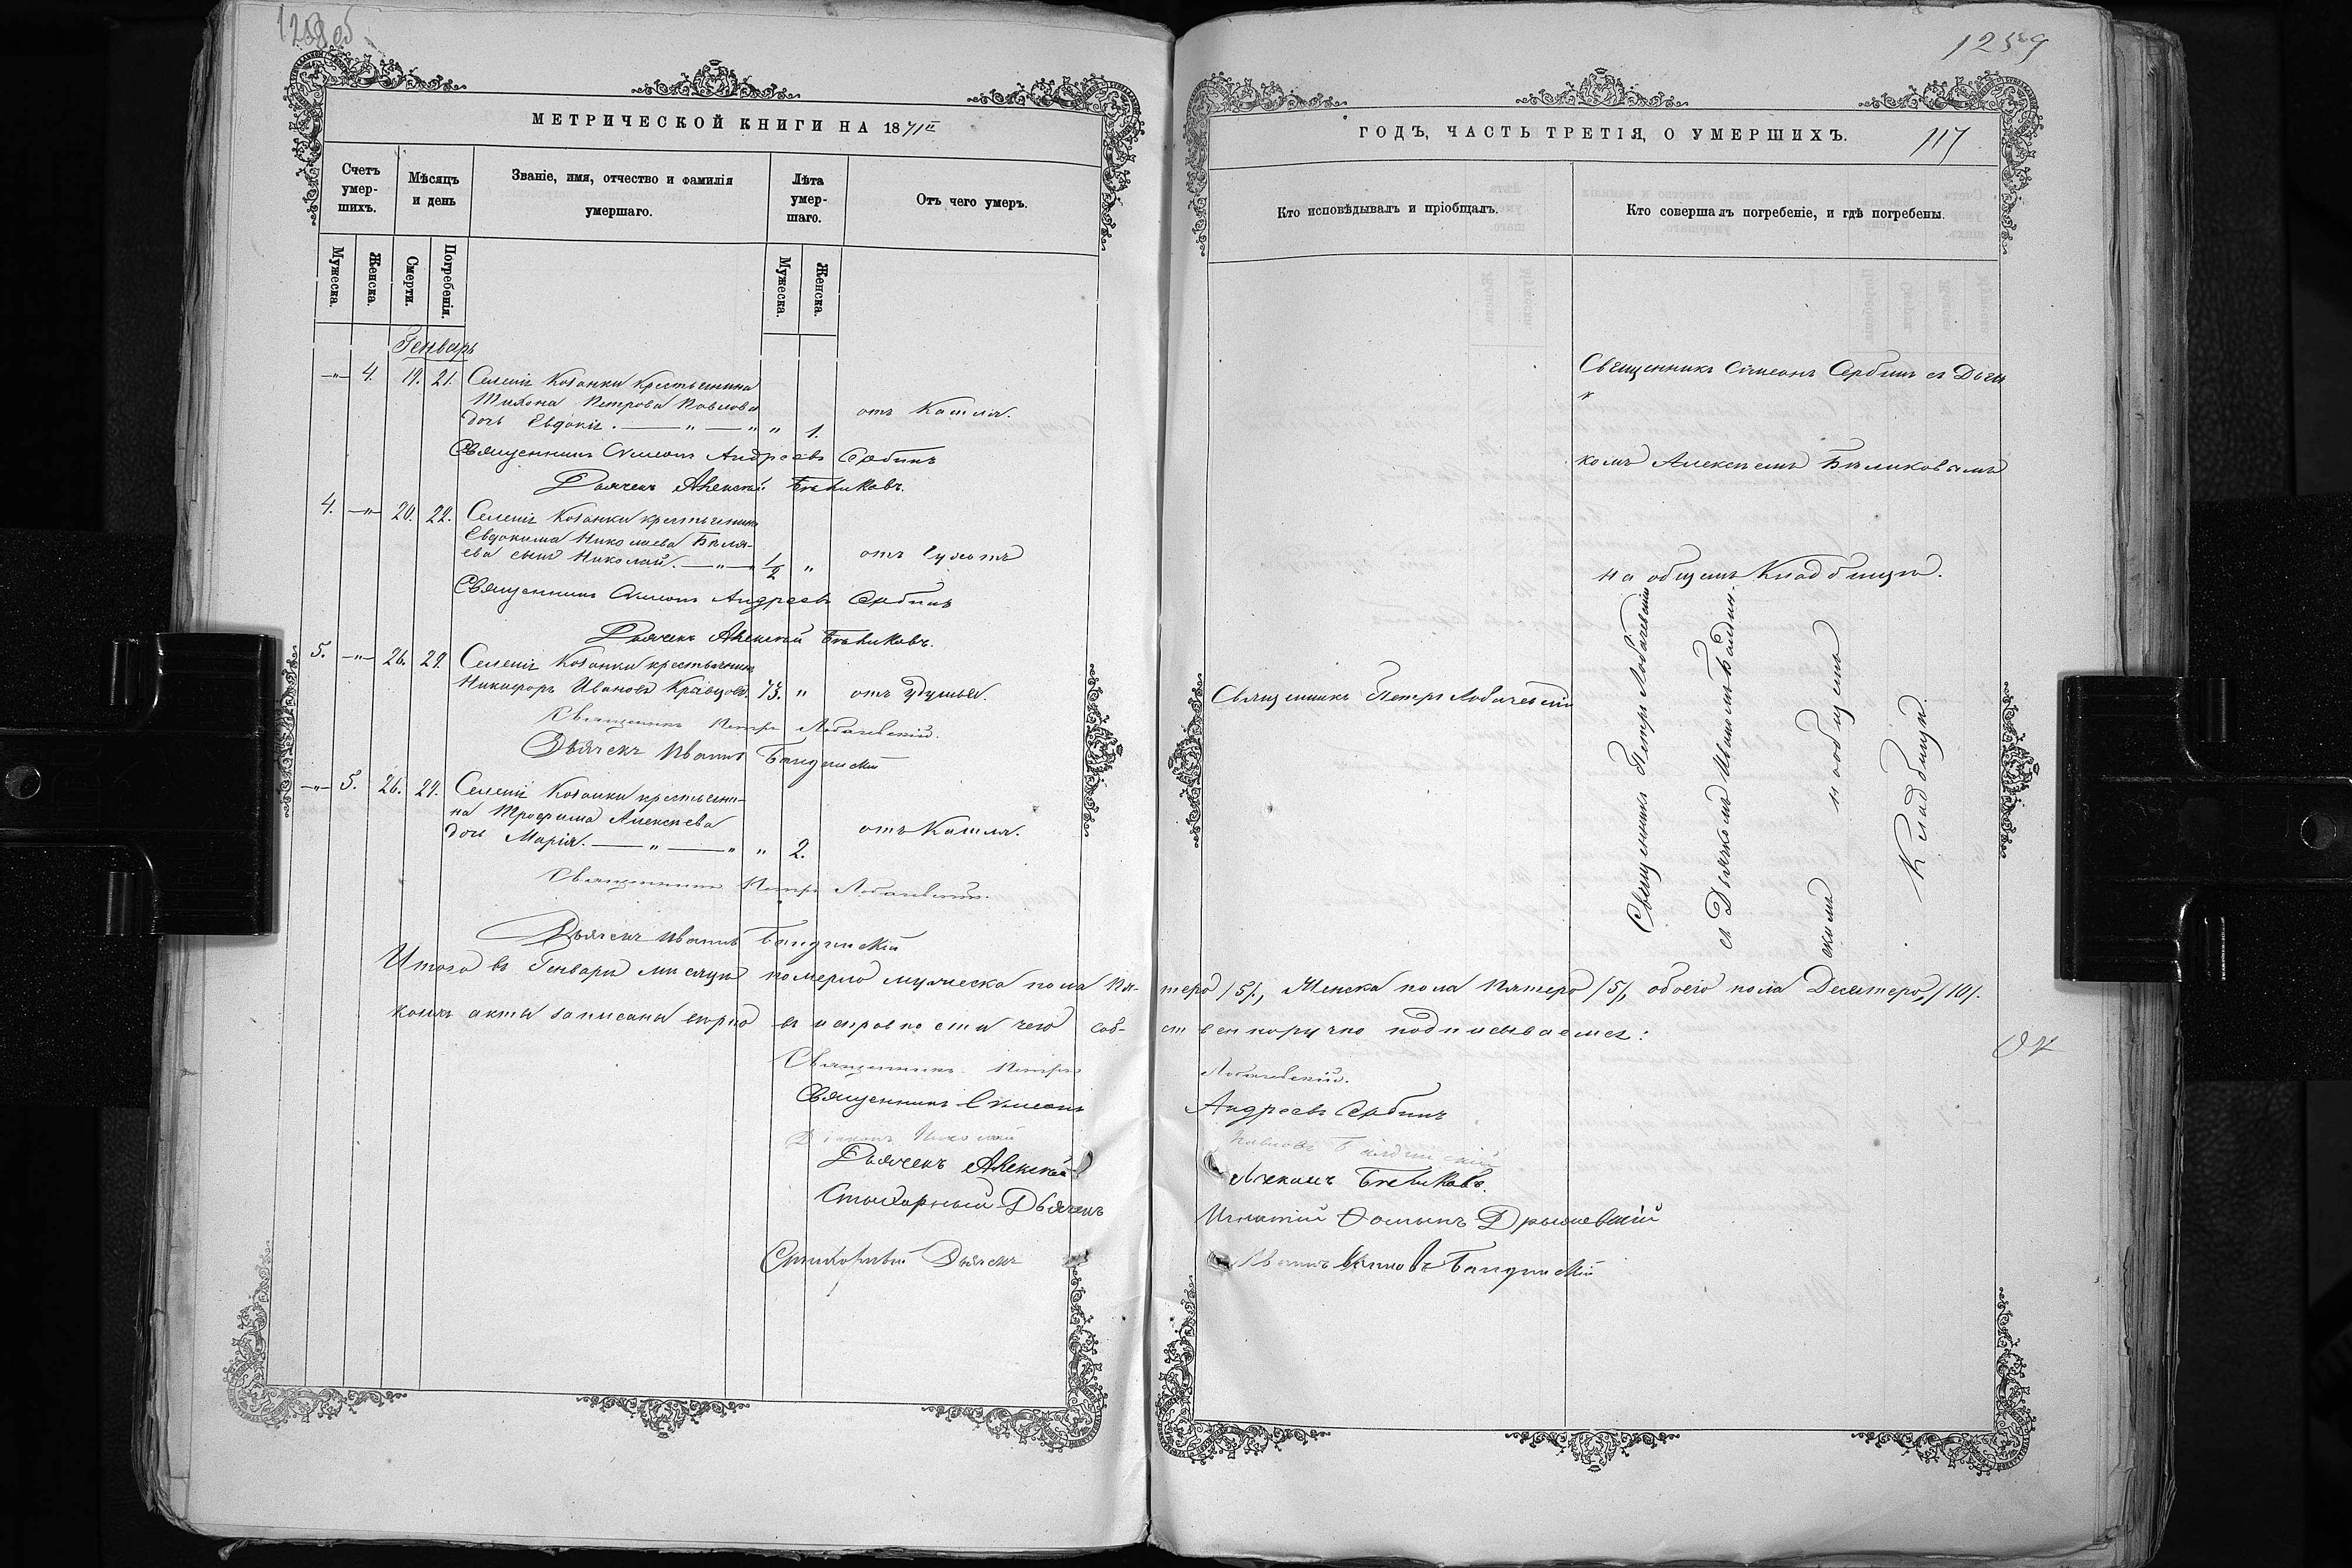 1258 об
МЕТРИЧЕСКОЙ КНИГИ НА 1871й
Счетъ умер-шихъ.
Мѣсяцъ и день
Званіе, имя, отчество и фамилія умершаго.
Лѣта умер-шаго.
Отъ чего умеръ.
Мужеска.
Женска.
Смерти.
Погребенія.
Мужеска.
Женска.
Генварь
-"- 4. 19. 21. Селенія Козанки крестьянина
Тихона Петрова Павлова отъ Кашля.
дочь Евдокія. — " — " " 1.
Священникъ Симеонъ Андреевъ Сербинъ
Дьячекъ Алексѣй Бѣликовъ.
4. -"- 20. 22. Селенія Козанки крестьянина
Евдокима Николаева Бѣля-
ева сынъ Николай. — " — 1/2 " отъ сухотъ
Священникъ Симеонъ Андреевъ Сербинъ
Дьячекъ Алексѣй Бѣликовъ.
5. -"- 26. 29. Селенія Козанки крестьянинъ
Никифоръ Ивановъ Кравцовъ. 73. " отъ удушья.
Священникъ Петръ Лобачевскій.
Дьячекъ Иванъ Балдинскій
-"- 5. 26. 29. Селенія Козанки крестьяни-
на Трофима Алексѣева отъ Кашля.
дочь Марія. — " — " " 2.
Священникъ Петръ Лобачевскій.
Дьячекъ Иванъ Балдинскій
Итого въ Генварѣ мѣсяцѣ померло мужеска пола Пя-
коихъ акты записаны вѣрно въ исправности чего соб-
Священникъ Петръ
Священникъ Симеонъ
Діаконъ Николай
Дьячекъ Алексѣй
Стихарный Дьячекъ
Стихарный Дьячекъ
1259
ГОДЪ, ЧАСТЬ ТРЕТІЯ, О УМЕРШИХЪ.
117
Кто исповѣдывалъ и пріобщалъ.
Кто совершалъ погребеніе, и гдѣ погребены.
Священникъ Симеонъ Сербинъ съ Дьяч
комъ Алексѣемъ Бѣликовымъ
на общемъ Кладбищѣ.
Священникъ Петръ Лобачевскій
Священникъ Петръ Лобачевскій
съ Дьячкомъ Иваномъ Балдин
скимъ на общемъ
Кладбищѣ.
теро /5/, Женска пола Пятеро /5/, обоего пола Десятеро, /10/.
ственноручно подписываемся:
Лобачевскій.
Андреевъ Сербинъ
Павловъ Балдинскій
Бѣликовъ.
Игнатій Ѳоминъ
Иванъ Балдинскій